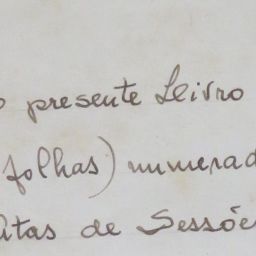 o presente Livro
folhas) numerad
Atas de Sessõe